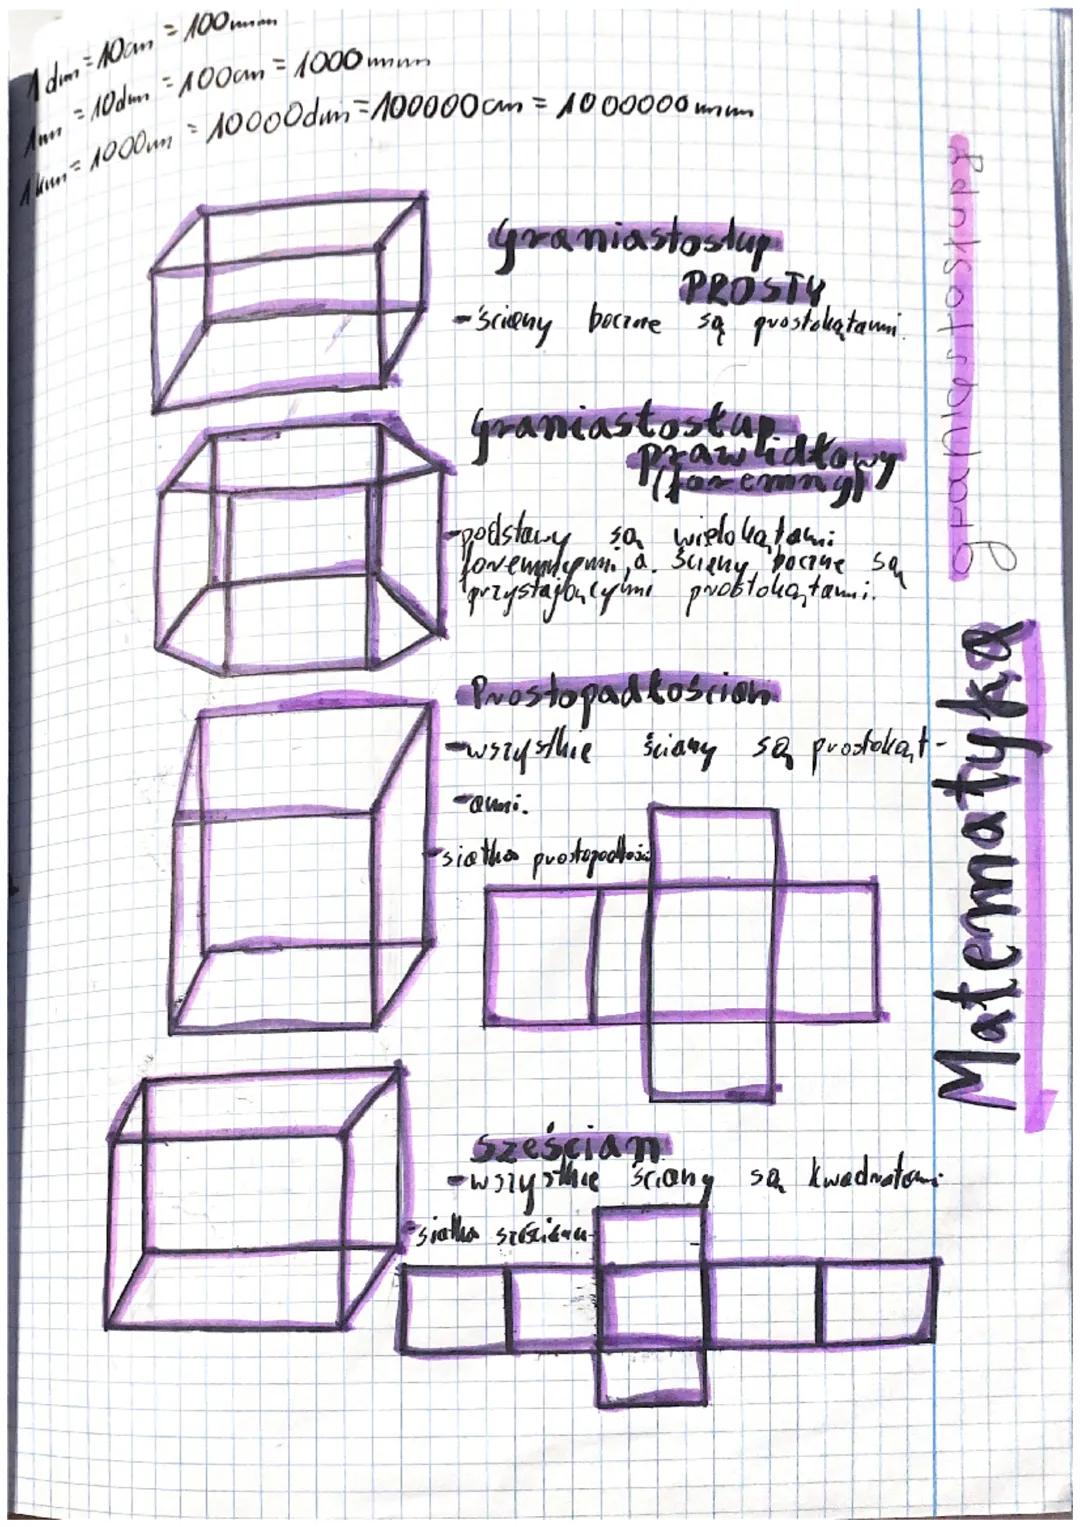 1dm = 10cm = 100mm
1m = 10dm = 100cm = 1000mm
1km = 1000m = 10000dm = 100000cm = 1000000mm
graniastosłupy
Matematyka
Graniastosłup
PROSTY
- ściany boczne są prostokątami.
Graniastosłup
prawidłowy
(foremny)
- podstawy są wielokątami
foremnymi, a ściany boczne są
przystającymi prostokątami.
Prostopadłościan
- wszystkie ściany są prostokąt-
-ami.
- siatka prostopadłości
Sześcian
- wszystkie ściany są kwadratami
- siatka sześcianu